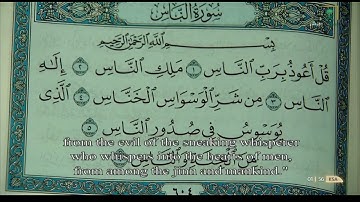 سُورَةُ النَّاسِ
بِسْمِ اللَّهِ الرَّحْمَٰنِ الرَّحِيمِ
قُلْ أَعُوذُ بِرَبِّ النَّاسِ ١ مَلِكِ النَّاسِ ٢ إِلَٰهِ
النَّاسِ ٣ مِن شَرِّ الْوَسْوَاسِ الْخَنَّاسِ ٤ الَّذِي
يُوَسْوِسُ فِي صُدُورِ النَّاسِ ٥
مِنَ الْجِنَّةِ وَالنَّاسِ
from the evil of the sneaking whisperer
who whispers into the hearts of men,
from among the jinn and mankind."
٦٠٤
KSA